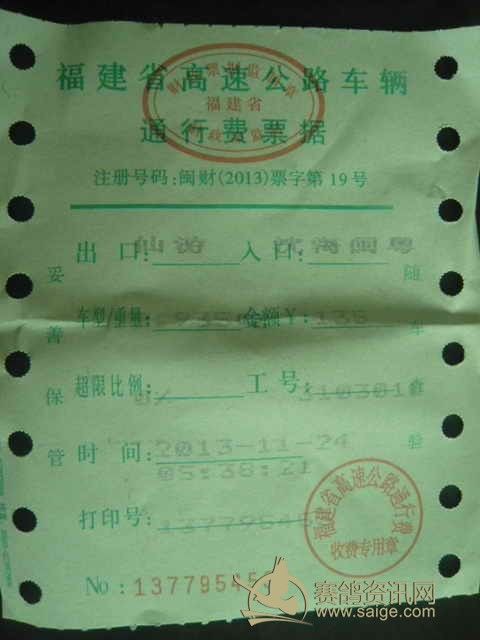 福建省高速公路车辆
福建省
通行费票据
注册号码:闽财(2013)票字第19号
出口: 仙游 入口: 沈海闽粤
车型/重量: 金额¥:135
超限比例: 工号: 310301
时间: 2013-11-24
05:38:21
打印号: 1377954
No: 1377954
妥善保管
随车查验
福建省高速公路通行费
收费专用章
赛鸽资讯网
www.saige.com